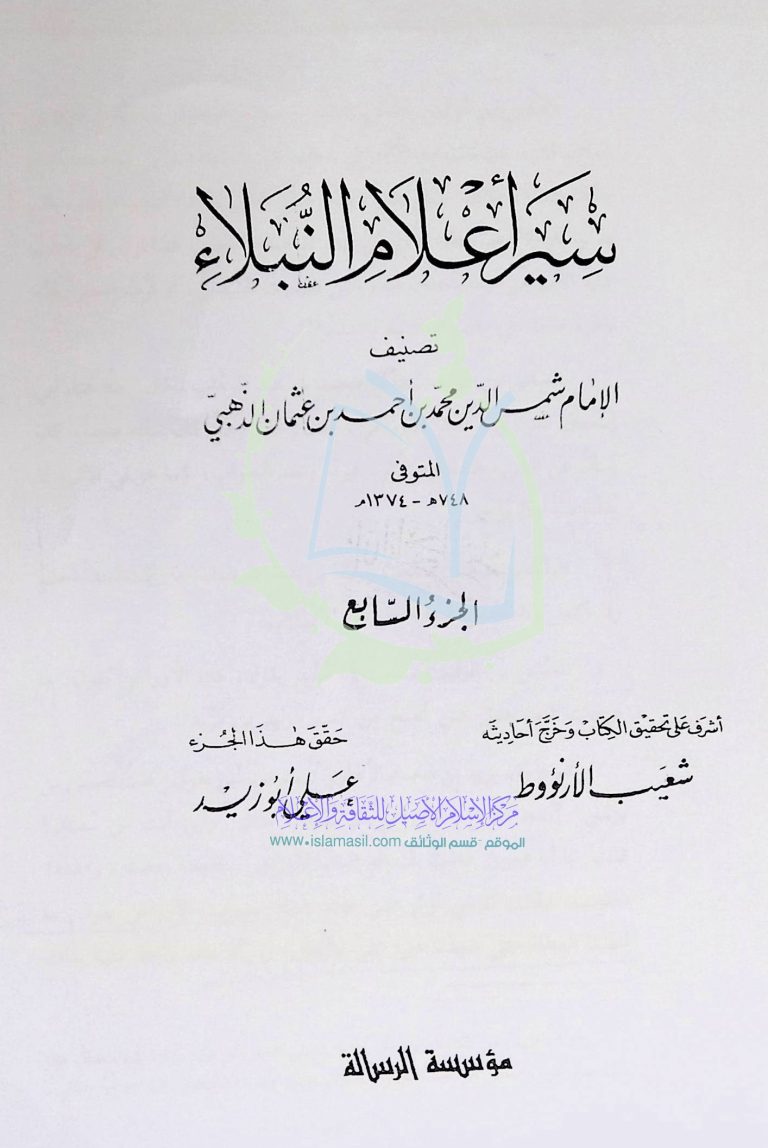 سِيَر أَعْلَامِ النُّبَلَاءِ
تصنيف
الإمام شمس الدّين محمّد بن أحمد بن عثمان الذّهبيّ
المتوفى
٧٤٨هـ - ١٣٧٤م
الجزءُ السّابع
أشرف على تحقيق الكتاب وخرّج أحاديثه
شعَيب الأرنؤوط
حقّق هذا الجزء
علي أبو زيد
مركز الإسلام الأصيل للثقافة والإعلام
الموقع -قسم الوثائق www.islamasil.com
مؤسسة الرسالة